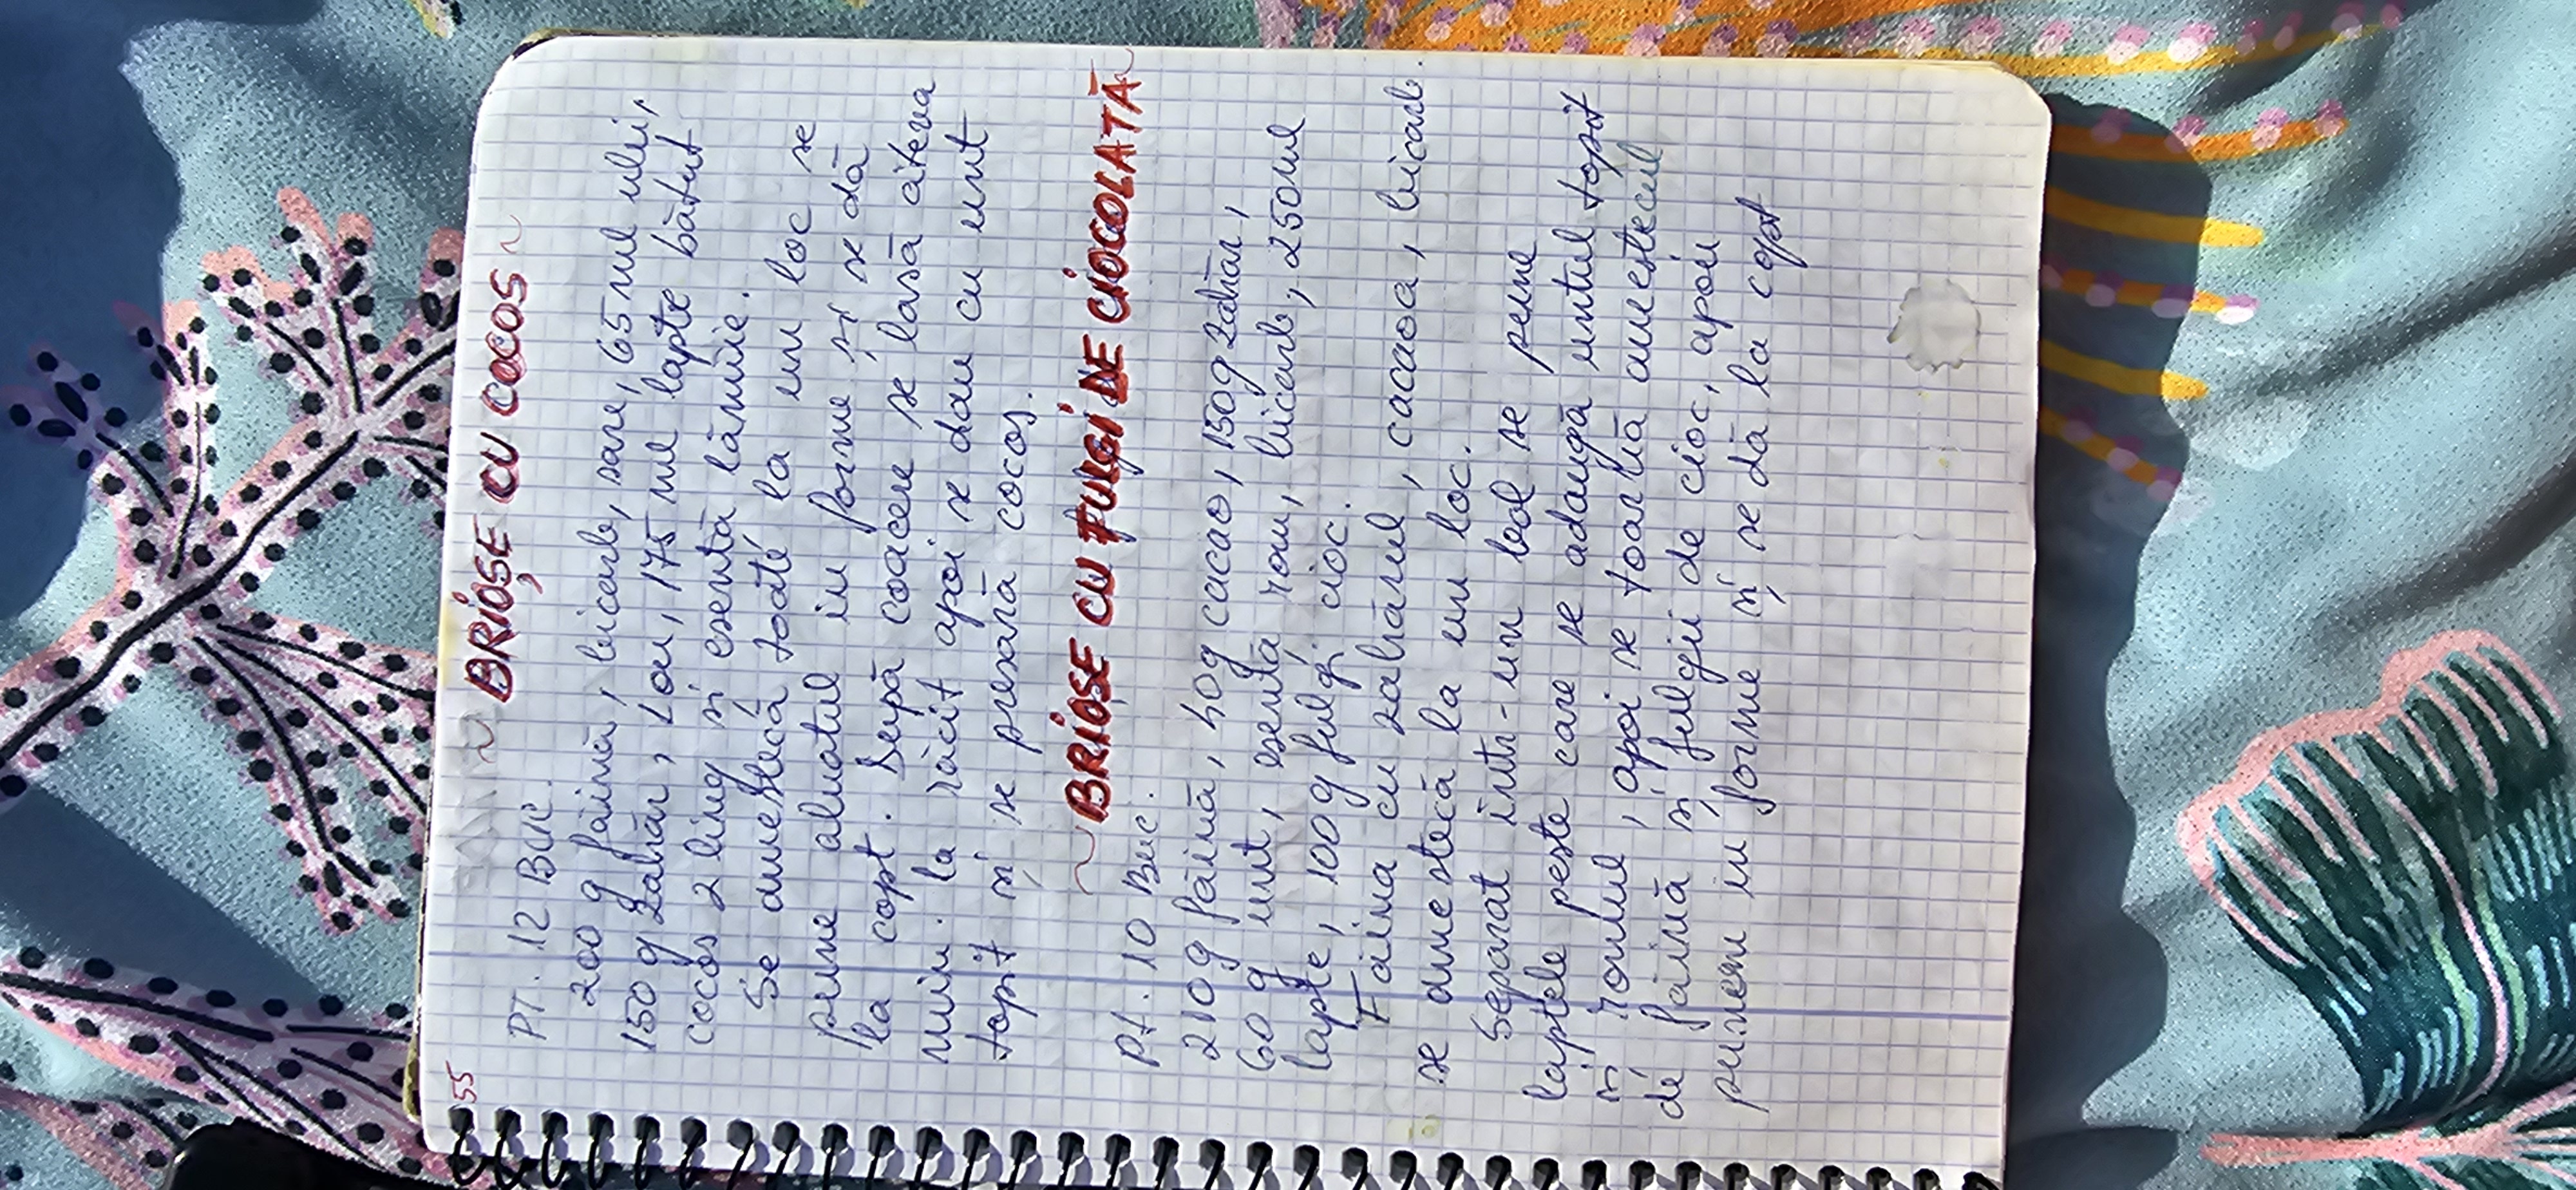 55
~ BRIOȘE CU COCOS ~
PT. 12 BUC.
200 g făină, bicarb, sare, 65 ml ulei,
150 g zahăr, 1 ou, 175 ml lapte bătut
cocos 2 ling și esență lămîie.
Se amestecă toate la un loc se
pune aluatul in forme și se dă
la copt. După coacere se lasă cîteva
min. la răcit apoi se dau cu unt
topit și se presară cocos.
~ BRIOȘE CU FULGI DE CIOCOLATĂ ~
Pt. 10 Buc.
210 g făină, 40g cacao, 150g zahăr,
60 g unt, esență rom, bicarb, 250 ml
lapte, 100 g fulgi cioc.
Făina cu zahărul, cacaoa, bicarb.
se amestecă la un loc.
Separat într-un bol se pune
laptele peste care se adaugă untul topit
și romul, apoi se toarnă amestecul
de făină și fulgii de cioc, apoi
punem in forme și se dă la copt